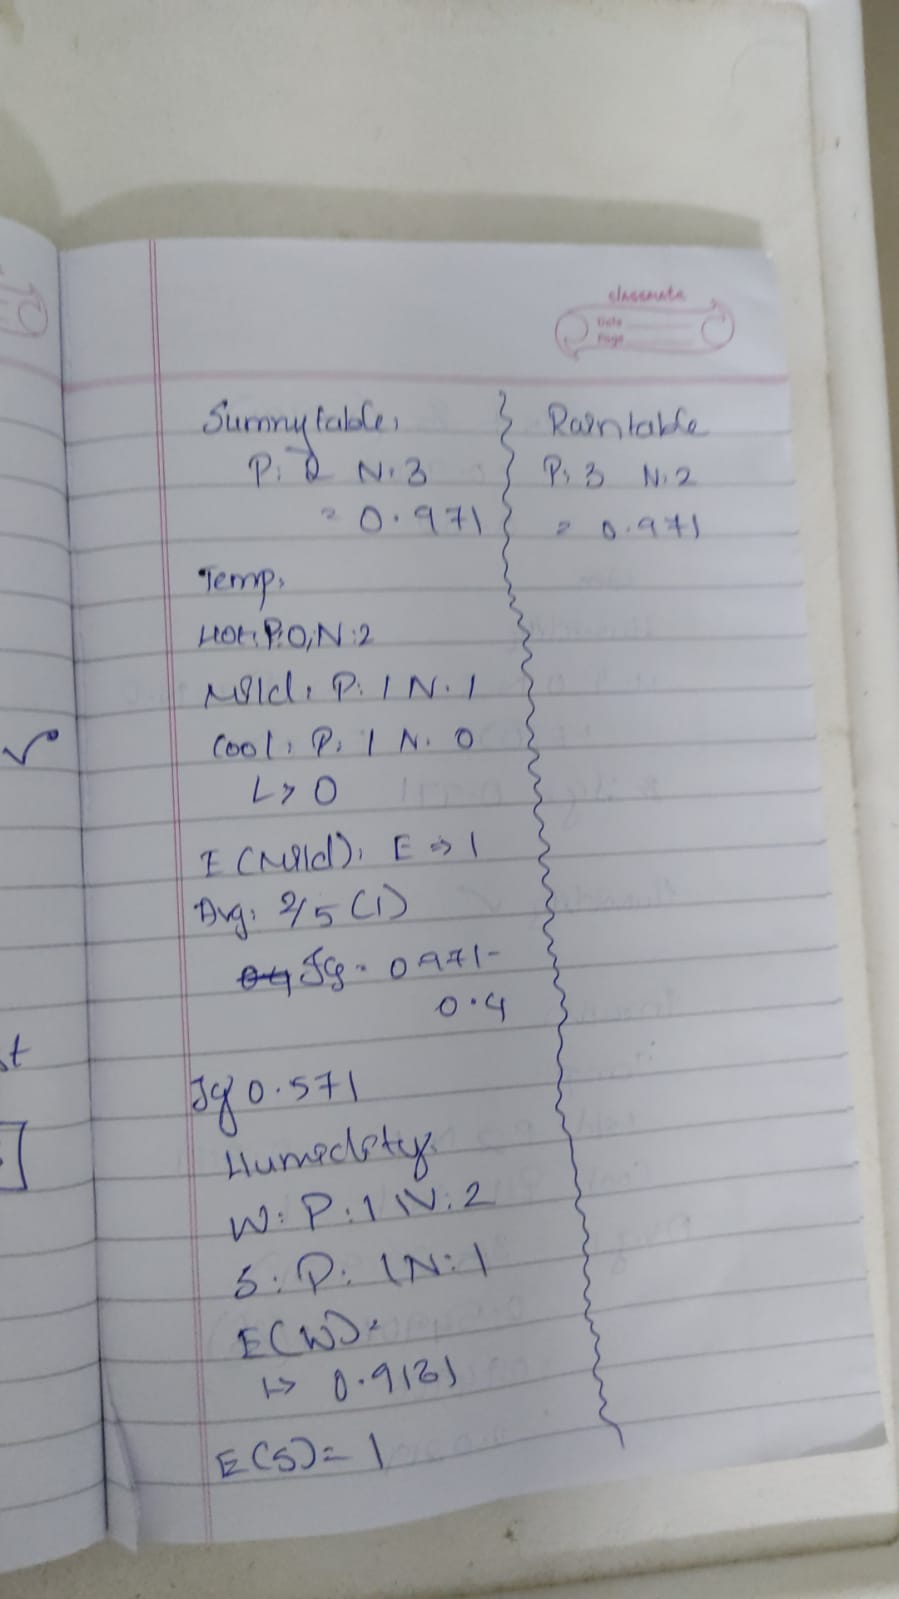 classmate
Date
Page
Sunny table:
P: 2 N: 3
= 0.971
Temp:
Hot: P:0, N:2
Mild: P: 1 N: 1
Cool: P: 1 N: 0
↳ 0
E (Mild): E ⇒ 1
Avg: 2/5 (1)
Ig = 0.971-
0.4
Ig 0.571
Humidity:
W: P: 1 N: 2
S: P: 1 N: 1
E(W):
↳ 0.9181
E(S) = 1
Rain table
P: 3 N: 2
= 0.971
st